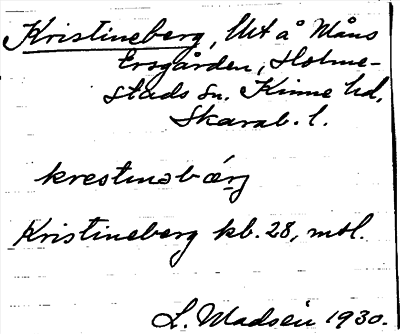 Kristineberg, lht å Måns
Ersgården, Holme-
stads sn. Kinne hd.
Skarab. l.
krestinəbærj
Kristineberg kb. 28, mtl.
L. Madsén 1930.